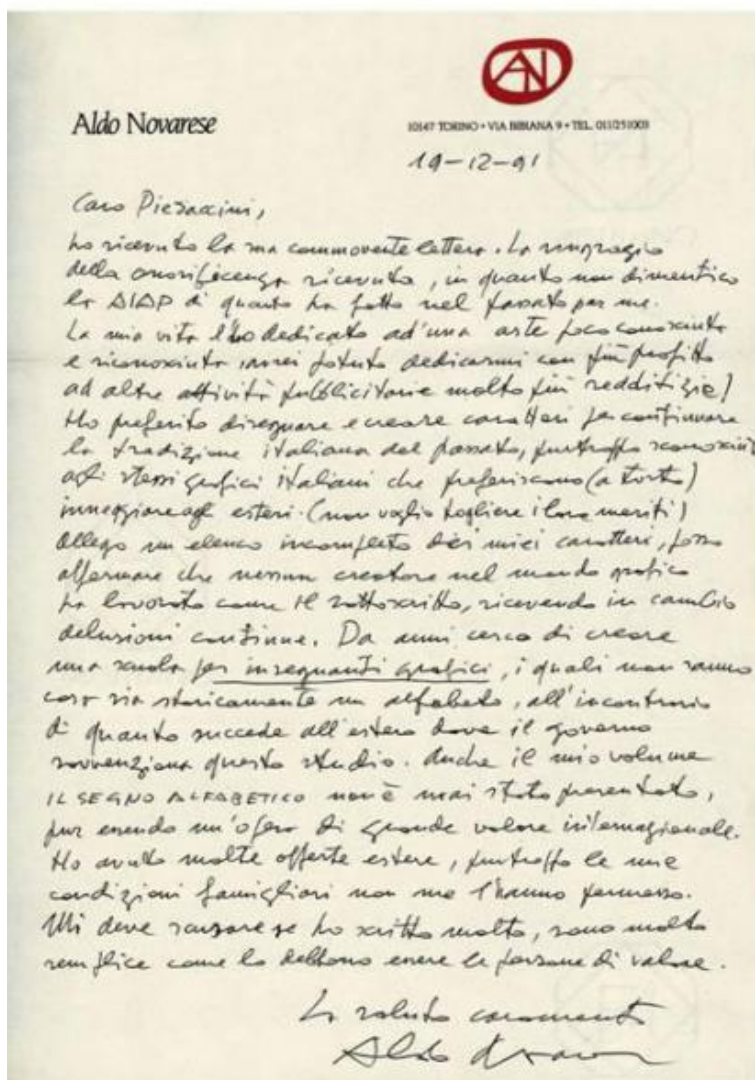 AN
Aldo Novarese
10147 TORINO • VIA BIBIANA 9 • TEL. 011/251003
19-12-91
Caro Pieraccini,
ho ricevuto la sua commovente lettera. La ringrazio
della onorificenza ricevuta, in quanto non dimentico
la AIAP di quanto ha fatto nel passato per me.
La mia vita l'ho dedicato ad'una arte poco conosciuta
e riconosciuta, avrei potuto dedicarmi con più profitto
ad altre attività pubblicitarie molto più redditizie!
Ho preferito disegnare e creare caratteri per continuare
la tradizione italiana del passato, purtroppo sconosciut
agli stessi grafici italiani che preferiscono (a torto)
inneggiare agli esteri. (non voglio togliere i loro meriti)
Allego un elenco incompleto dei miei caratteri, posso
affermare che nessun creatore nel mondo grafico
ha lavorato come il sottoscritto, ricevendo in cambio
delusioni continue. Da anni cerco di creare
una scuola per insegnanti grafici, i quali non sanno
cosa sia storicamente un alfabeto, all'incontrario
di quanto succede all'estero dove il governo
sovvenziona questo studio. Anche il mio volume
IL SEGNO ALFABETICO non è mai stato presentato,
pur essendo un'opera di grande valore internazionale.
Ho avuto molte offerte estere, purtroppo le mie
condizioni famigliari non me l'hanno permesso.
Mi deve scusare se ho scritto molto, sono molto
semplice come lo debbono essere le persone di valore.
La saluto caramente
Aldo Novarese